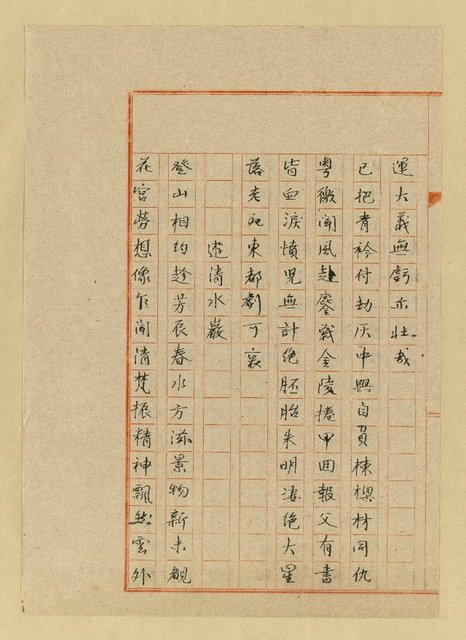 運大義無虧亦壯哉
已把青衿付劫灰中興自負棟樑材同仇
粵徼聞風起鏖戰金陵捲甲回報父有書
皆血淚憤兒無計絕胚胎朱明淒絕大星
落老死東都劇可哀
遊清水巖
登山相約趁芳辰春水方滋景物新未覩
花宮勞想像乍聞清梵振精神飄然雲外